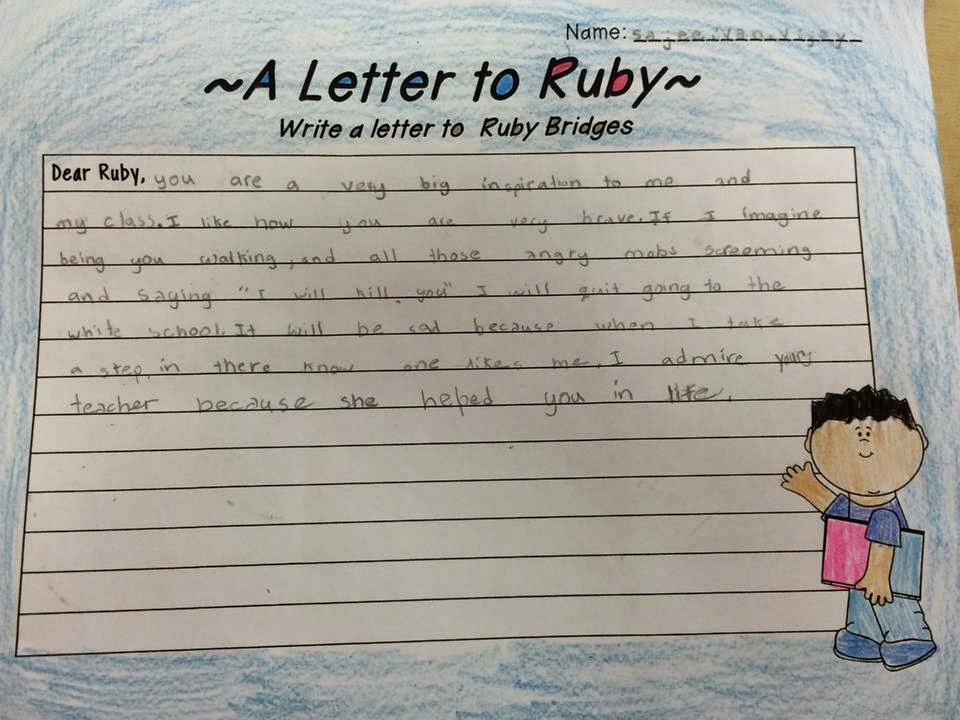 Name: Sajeevan.Vijey
~A Letter to Ruby~
Write a letter to Ruby Bridges
Dear Ruby, you are a very big inspiration to me and
my class. I like how you are very brave. If I imagine
being you walking, and all those angry mobs screeming
and saying "I will kill you" I will quit going to the
white school. It will be sad because when I take
a step in there know one likes me. I admire your
teacher because she helped you in life.